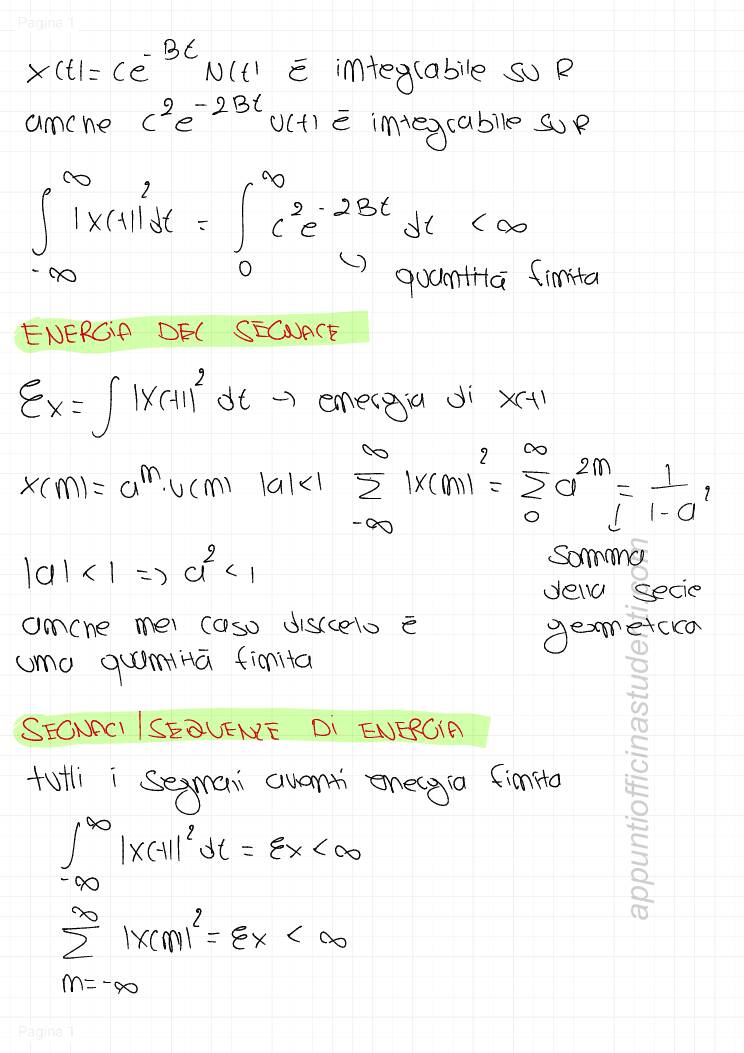 Pagina 1
x(t) = ce^{-Bt} u(t) è integrabile su R
anche c^2 e^{-2Bt} u(t) è integrabile su R
∫_{-∞}^{∞} |x(t)|^2 dt = ∫_0^∞ c^2 e^{-2Bt} dt < ∞
↳ quantità finita
ENERGIA DEL SEGNALE
Ɛx = ∫ |x(t)|^2 dt → energia di x(t)
x(n) = a^n · u(n) |a|<1 ∑_{-∞}^{∞} |x(n)|^2 = ∑_0^∞ a^{2n} = 1/(1-a^2)
|a| < 1 => a^2 < 1
↓ somma
della serie
geometrica
anche nel caso discreto è
una quantità finita
SEGNALI/SEQUENZE DI ENERGIA
tutti i segnali aventi energia finita
∫_{-∞}^{∞} |x(t)|^2 dt = Ɛx < ∞
∑_{n=-∞}^{∞} |x(n)|^2 = Ɛx < ∞
appuntiofficinastudenti.com
Pagina 1